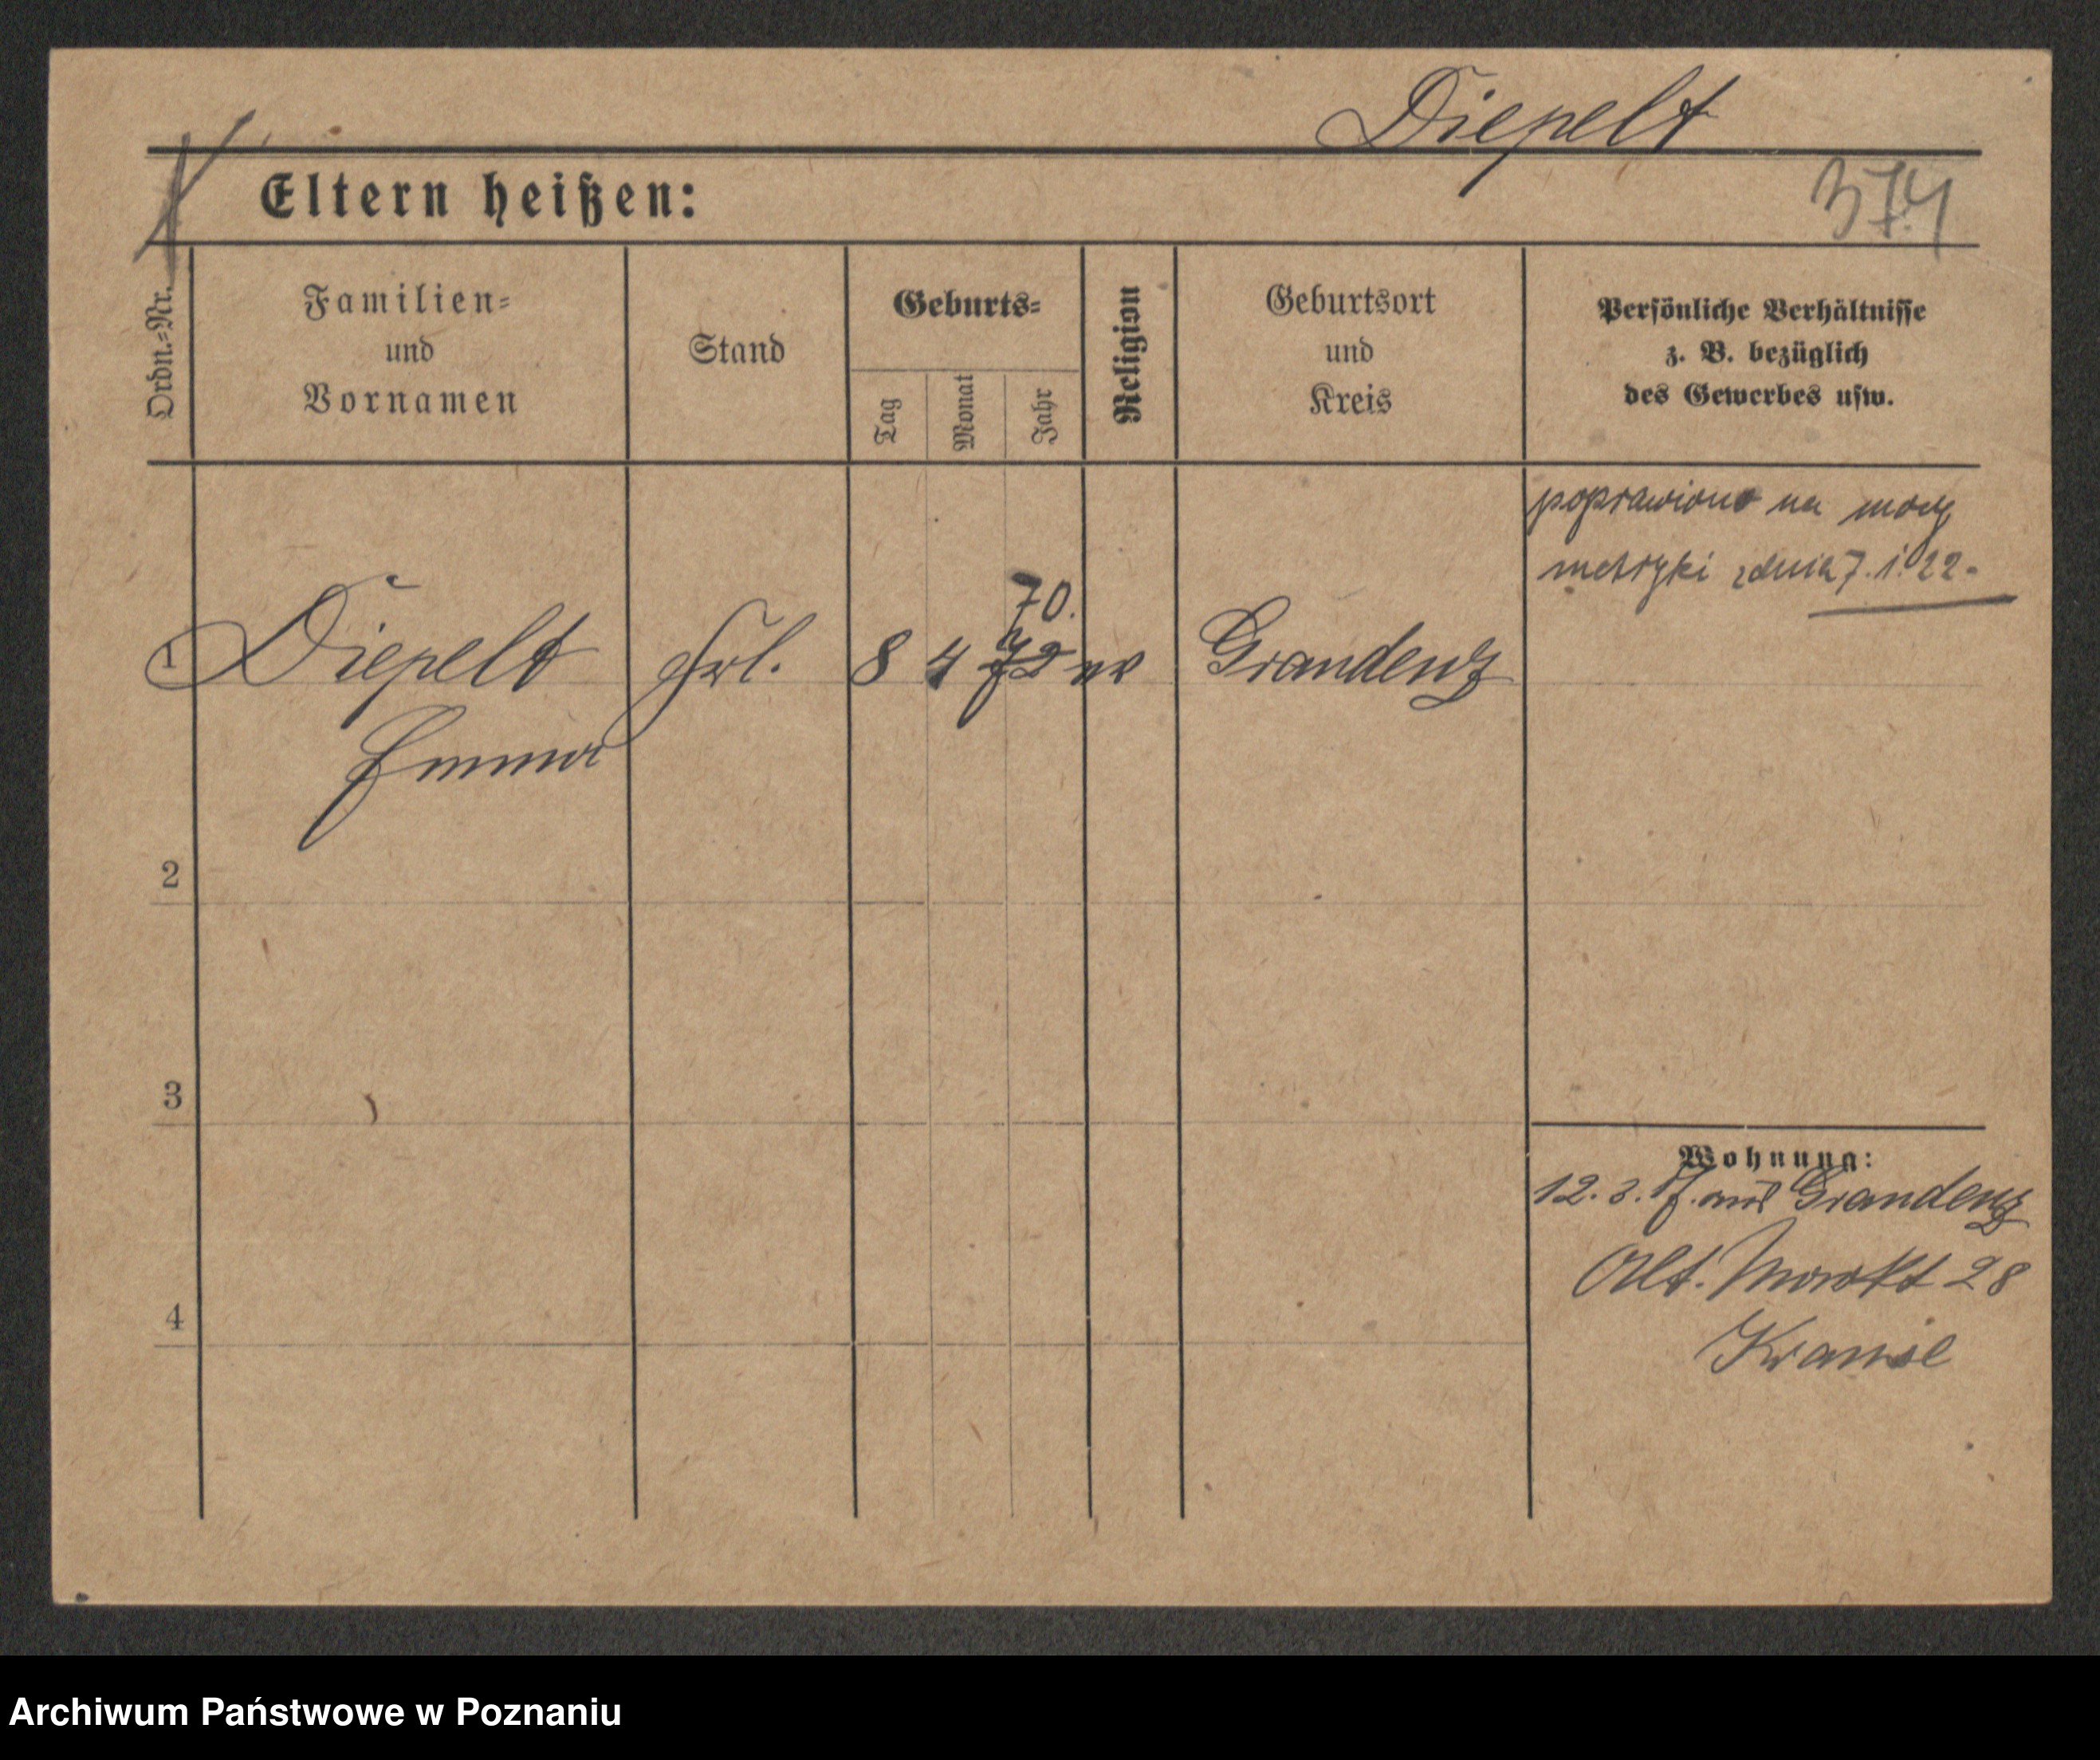 Diepelt
Eltern heißen:
374
Ordn.-Nr.
Familien-
und
Vornamen
Stand
Geburts-
Tag
Monat
Jahr
Religion
Geburtsort
und
Kreis
Persönliche Verhältnisse
z. B. bezüglich
des Gewerbes usw.
poprawiono na mocy
metryki z dnia 7.1.22.
70.
1 Diepelt Frl. 8 4 72 Graudenz
Emma
2
3
4
Wohnung:
12. 3. aus Graudenz
Alt. Markt 28
Archiwum Państwowe w Poznaniu